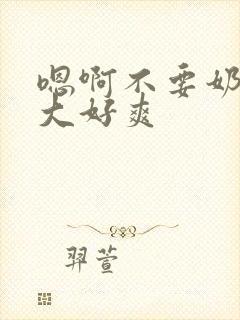 嗯啊不要奶
大好爽
羿萱